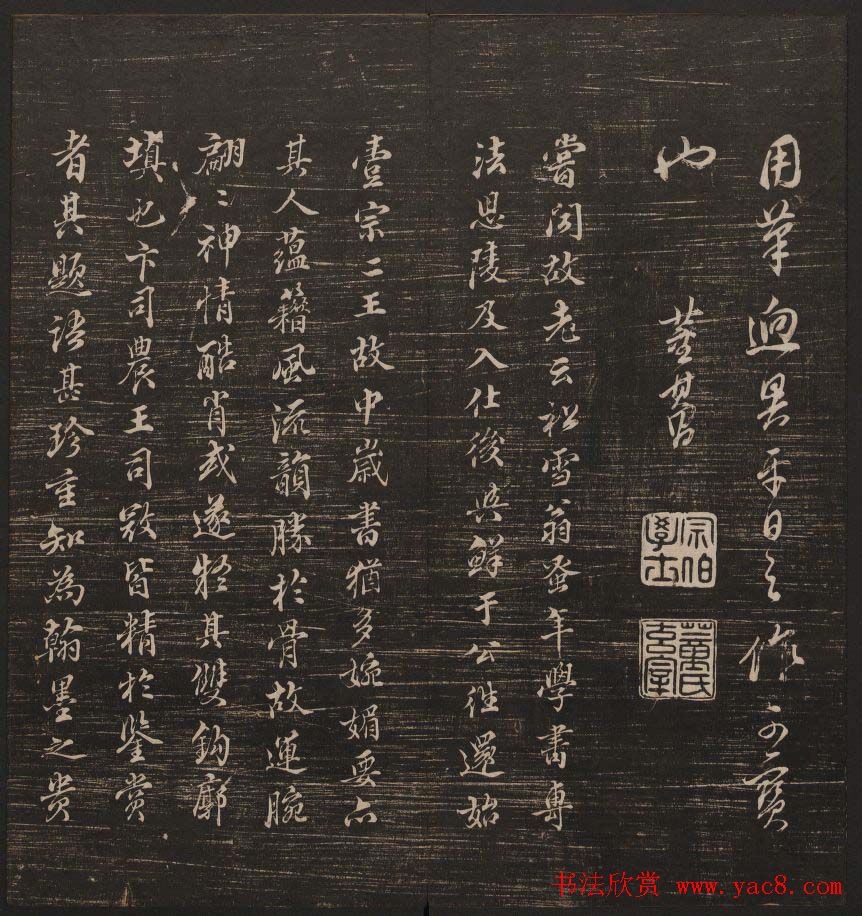 用筆迥異平日之作可寶
也 董其昌
宗伯學士
董氏玄宰
嘗聞故老云松雪翁蚤年學書專
法思陵及入仕後與鮮于公往還始
壹宗二王故中歲書猶多婉媚要亦
其人蘊藉風流韻勝於骨故運腕
翩〻神情酷肖或遂疑其雙鉤廓
填也卞司農王司寇皆精於鑒賞
者其題語甚珍重知為翰墨之貴
书法欣赏 www.yac8.com